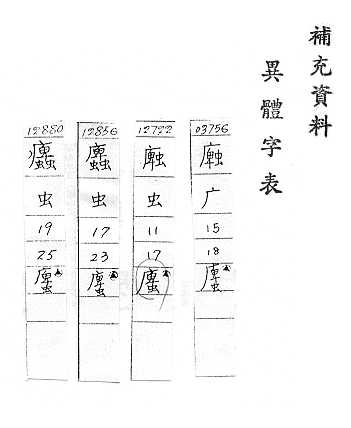 補充資料
異體字表
03756
广
15
18
12722
虫
11
17
12856
虫
17
23
12880
虫
19
25